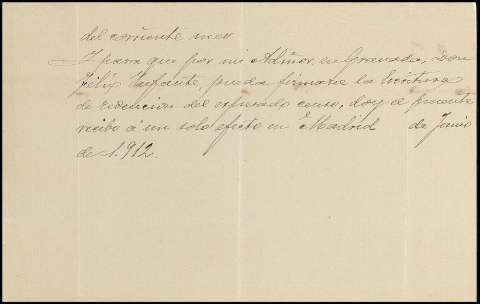 del corriente mes.
Y para que por mi Admor. en Granada, Don
Félix Infante, pueda firmarse la Escritura
de redencion del expresado censo, doy el presente
recibo á un solo efecto en Madrid de Junio
de 1.912.